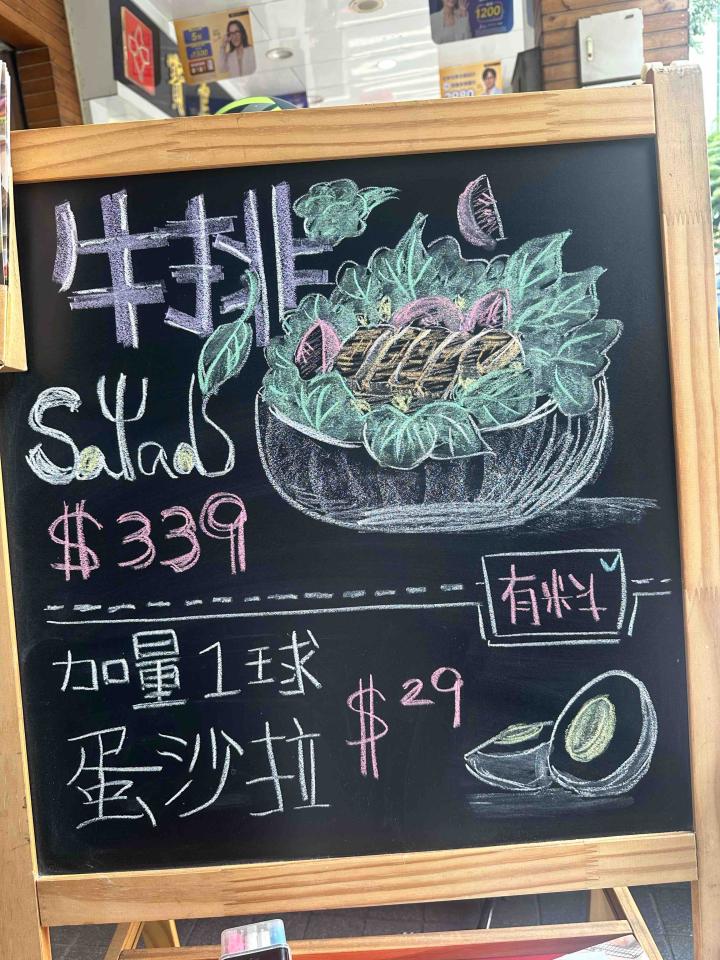 1200
牛排
Salad
$339
有料
加量1球
蛋沙拉 $29